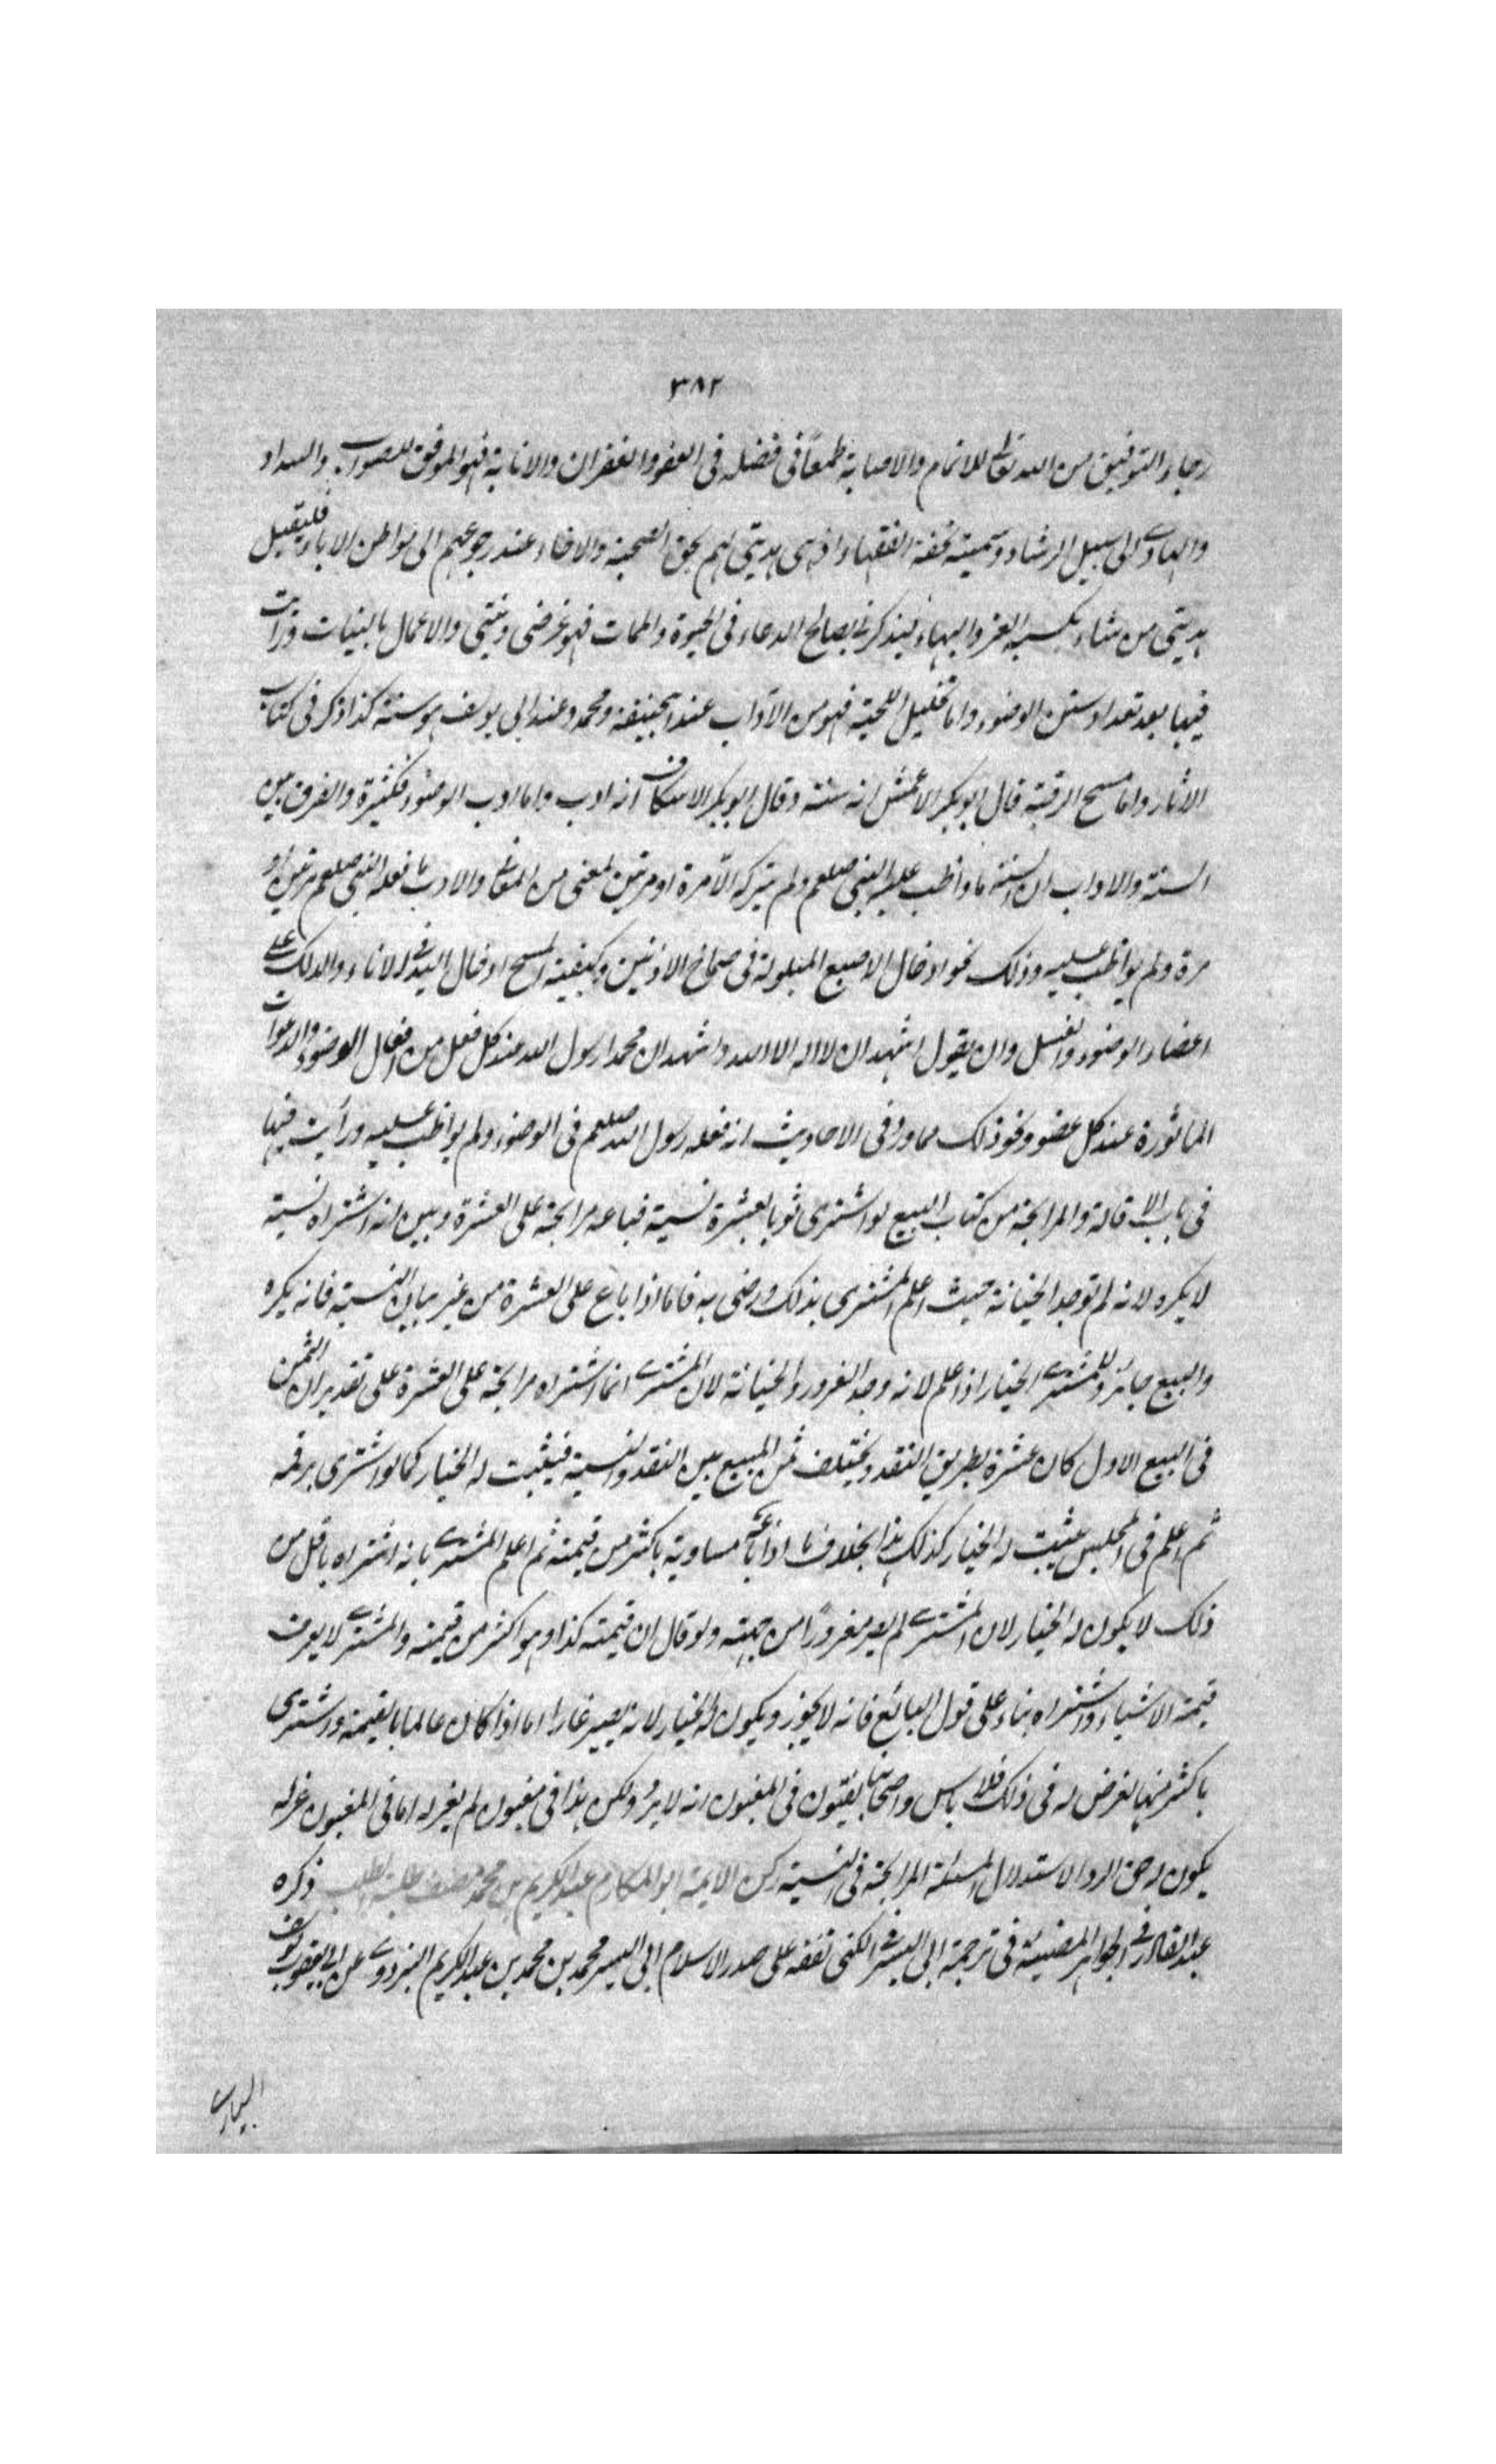 ٣٨٢
رجاء التوفيق من الله تعا للاتمام والاصابة طمعاً فى فضله فى العفو والغفران والانابة فهو الموفق للصواب والسداد
والهادى الى سبيل الرشاد وسميته تحفة الفقهاء اذ هى هديتى لهم بحق الصحبة والاخاء عند رجوعهم الى مواطن الاباء فليقبل
هديتى من شاء بكسبه العز والبهاء ليذكرنا بصالح الدعاء فى الحيوة والممات فهو غرضى ونيتى والاعمال بالنيات ورأيت
فيها بعد تعداد سنن الوضوء واما تخليل اللحية فهو من الآداب عند ابيحنيفة ومحمد وعند ابى يوسف هو سنة كذا ذكر فى كتاب
الاثار واما مسح الرقبة قال ابو بكر الاعمش انه سنة وقال ابو بكر الاسكاف انه ادب واما ادب الوضوء فكثيرة والفرق بين
السنة والاداب ان السنة ما واظب عليه النبى صلعم ولم يتركه الا مرة او مرتين لمعنى من المعانى والادب ما فعله النبى صلعم مرتين او
مرة ولم يواظب عليه وذلك نحو ادخال الاصبع المبلولة فى صماخ الاذنين وكيفية المسح ادخال اليد فى الاناء والدلك على
اعضاء الوضوء والغسل وان يقول اشهد ان لا اله الا الله واشهد ان محمدا رسول الله عند كل فعل من افعال الوضوء والدعوات
الماثورة عند كل عضو ونحو ذلك مما ورد فى الاحاديث انه فعله رسول الله صلعم فى الوضوء ولم يواظب عليه ورأيت فيها
فى باب الاقالة والمرابحة من كتاب البيع لو اشترى ثوبا بعشرة نسية فباعه مرابحة على العشرة وبين انه اشتراه نسية
لا يكره لانه لم توجد الخيانة حيث اعلم المشترى بذلك ورضى به فاما اذا باع على العشرة من غير بيان النسية فانه يكره
والبيع جائز وللمشترى الخيار اذا علم لانه وجد الغرور والخيانة لان المشترى انما اشتراه مرابحة على العشرة على تقدير ان الثمن
فى البيع الاول كان عشرة بطريق النقد ويختلف ثمن المبيع بين النقد والنسية فيثبت له الخيار كما لو اشترى برقمه
ثم اعلم فى المجلس يثبت له الخيار كذلك هذا بخلاف ما اذا باعه مساوية باكثر من قيمته ثم اعلم المشترى بانه اشتراه باقل من
ذلك لا يكون له الخيار لان المشترى لم يصر مغروراً من جهته ولو قال ان قيمته كذا وهو اكثر من قيمته والمشترى لا يعرف
قيمة الاشياء واشتراه بناء على قول البائع فانه لا يجوز ويكون له الخيار لانه يصير غارا اما اذا كان عالما بالقيمة واشترى
باكثر منها لغرض له فى ذلك فلا باس واصحابنا يفتون فى المغبون انه لا يرد ولكن هذا فى مغبون لم يغر له اما فى المغبون غر له
يكون له حق الرد الاستدلال المسئلة المرابحة فى النسية ركن الايمة ابو المكارم عبد الكريم بن محمد مصنف طلبة الطلبة ذكره
عبد القادر فى الجواهر المضيئة فى ترجمة ابى اليسر الكنى تفقه على صدر الاسلام ابى اليسر محمد بن محمد بن عبد الكريم البزدوى عن ابى يعقوب يوسف
السيارى